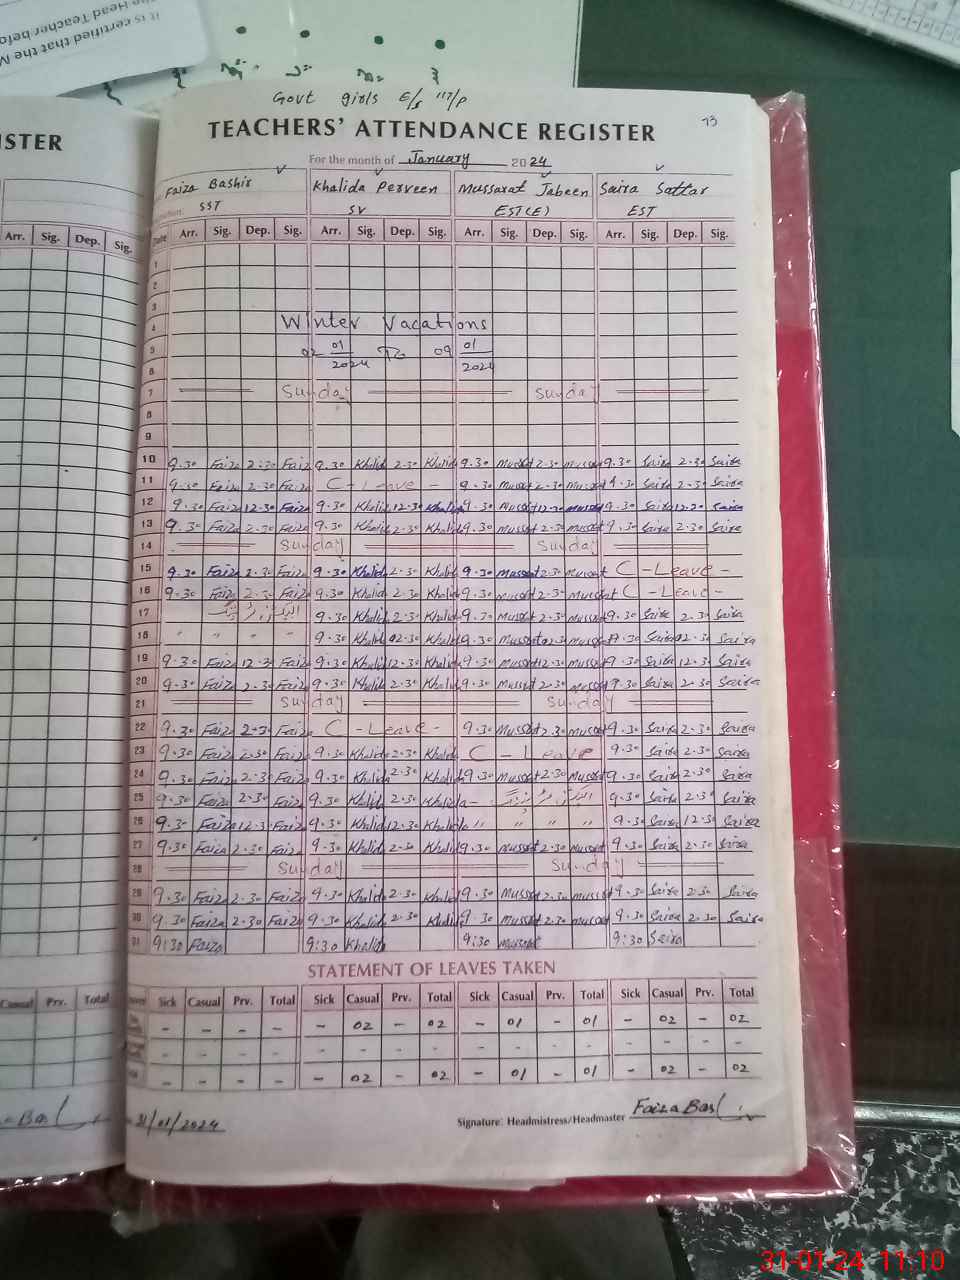 it is certified that the M
the Head Teacher befor
Govt girls E/s 117/P
STER
TEACHERS' ATTENDANCE REGISTER
73
For the month of January 2024
Faiza Bashir Khalida Perveen Mussarat Jabeen Saira Sattar
SST SV EST(E) EST
Arr. Sig. Dep. Sig.
Date Arr. Sig. Dep. Sig. Arr. Sig. Dep. Sig. Arr. Sig. Dep. Sig. Arr. Sig. Dep. Sig.
1
2
3
4 Winter Vacations
5 02 01/2024 To 09 01/2024
6
7 Sunday Sunday
8
9
10 9.30 Faiza 2.30 Faiza 9.30 Khalida 2.30 Khalida 9.30 Mussrat 2.30 Mussrat 9.30 Saira 2.30 Saira
11 9.30 Faiza 2.30 Faiza C - Leave - 9.30 Mussrat 2.30 Mussrat 9.30 Saira 2.30 Saira
12 9.30 Faiza 12.30 Faiza 9.30 Khalida 12.30 Khalida 9.30 Mussrat 12.30 Mussrat 9.30 Saira 12.30 Saira
13 9.30 Faiza 2.30 Faiza 9.30 Khalida 2.30 Khalida 9.30 Mussrat 2.30 Mussrat 9.30 Saira 2.30 Saira
14 Sunday Sunday
15 9.30 Faiza 2.30 Faiza 9.30 Khalida 2.30 Khalida 9.30 Mussrat 2.30 Mussrat C - Leave -
16 9.30 Faiza 2.30 Faiza 9.30 Khalida 2.30 Khalida 9.30 Mussrat 2.30 Mussrat C - Leave -
17 9.30 Khalida 2.30 Khalida 9.30 Mussrat 2.30 Mussrat 9.30 Saira 2.30 Saira
18 " " " " 9.30 Khalida 2.30 Khalida 9.30 Mussrat 2.30 Mussrat 9.30 Saira 2.30 Saira
19 9.30 Faiza 12.30 Faiza 9.30 Khalida 12.30 Khalida 9.30 Mussrat 12.30 Mussrat 9.30 Saira 12.30 Saira
20 9.30 Faiza 2.30 Faiza 9.30 Khalida 2.30 Khalida 9.30 Mussrat 2.30 Mussrat 9.30 Saira 2.30 Saira
21 Sunday Sunday
22 9.30 Faiza 2.30 Faiza C - Leave - 9.30 Mussrat 2.30 Mussrat 9.30 Saira 2.30 Saira
23 9.30 Faiza 2.30 Faiza 9.30 Khalida 2.30 Khalida C - Leave 9.30 Saira 2.30 Saira
24 9.30 Faiza 2.30 Faiza 9.30 Khalida 2.30 Khalida 9.30 Mussrat 2.30 Mussrat 9.30 Saira 2.30 Saira
25 9.30 Faiza 2.30 Faiza 9.30 Khalida 2.30 Khalida 9.30 Saira 2.30 Saira
26 9.30 Faiza 12.30 Faiza 9.30 Khalida 12.30 Khalida " " " " 9.30 Saira 12.30 Saira
27 9.30 Faiza 2.30 Faiza 9.30 Khalida 2.30 Khalida 9.30 Mussrat 2.30 Mussrat 9.30 Saira 2.30 Saira
28 Sunday Sunday
29 9.30 Faiza 2.30 Faiza 9.30 Khalida 2.30 Khalida 9.30 Mussrat 2.30 Mussrat 9.30 Saira 2.30 Saira
30 9.30 Faiza 2.30 Faiza 9.30 Khalida 2.30 Khalida 9.30 Mussrat 2.30 Mussrat 9.30 Saira 2.30 Saira
31 9:30 Faiza 9:30 Khalida 9:30 Mussrat 9:30 Saira
STATEMENT OF LEAVES TAKEN
Casual Prv. Total
Sick Casual Prv. Total Sick Casual Prv. Total Sick Casual Prv. Total Sick Casual Prv. Total
- - - - - 02 - 02 - 01 - 01 - 02 - 02
- - - - - - - - - - - - - - - -
- - - - - 02 - 02 - 01 - 01 - 02 - 02
31/01/2024 Signature: Headmistress/Headmaster Faiza Bas
31-01-24 11:10